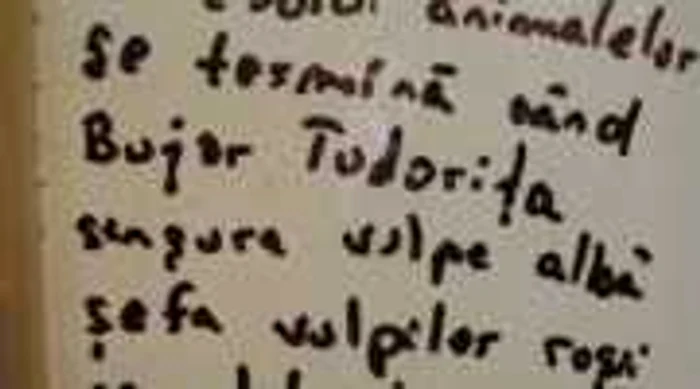 animalelor
se termină când
Bujor Tudorița
sengura vulpe albă
șefa vulpilor roși